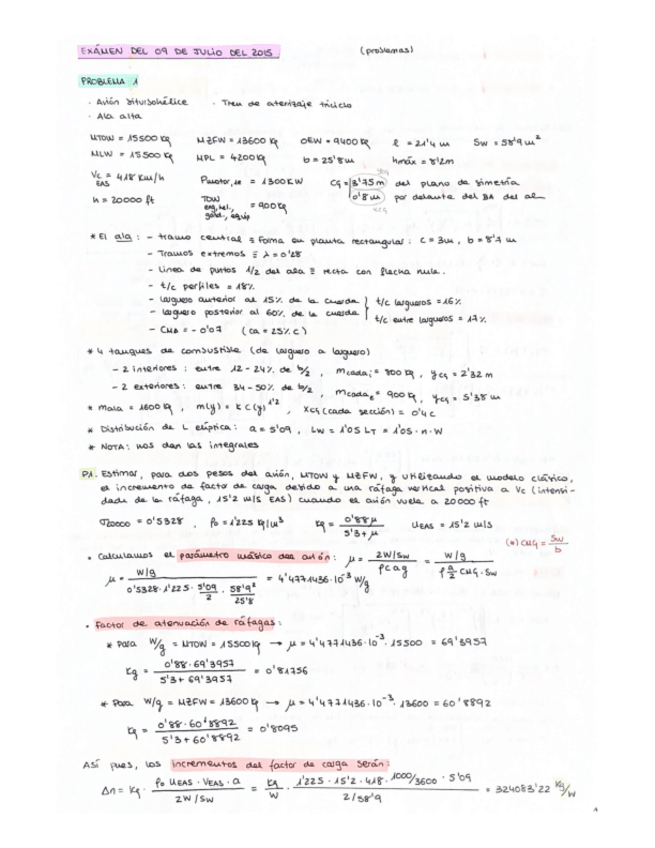 EXÁMEN DEL 09 DE JULIO DEL 2015 (problemas)
PROBLEMA 1
· Avión biturbohélice · Tren de aterrizaje triciclo
· Ala alta
MTOW = 15500 kg MZFW = 13600 kg OEW = 9400 kg l = 21'4 m Sw = 58'9 m²
MLW = 15500 kg MPL = 4200 kg b = 25'8 m hmáx = 8'2m
Vc = 418 km/h EAS Pmotor,se = 1300 KW CG = 3'75 m del plano de simetría
h = 20000 ft TOW = 900 kg 0'8 m por delante del BA del ala
* El ala : - tramo central ≡ Forma en planta rectangular : c = 3m, b = 8'7 m
- Tramos extremos ≡ λ = 0'28
- Linea de puntos 1/2 del ala ≡ recta con flecha nula.
- t/c perfiles = 18%
- larguero anterior al 15% de la cuerda } t/c largueros = 16%
- larguero posterior al 60% de la cuerda } t/c entre largueros = 17%
- CMA = - 0'07 (ca = 25% c)
* 4 tanques de combustible (de larguero a larguero)
- 2 interiores : entre 12 - 24% de b/2 , mcada,i = 800 kg , ycg = 2'32 m
- 2 exteriores : entre 34 - 50% de b/2 , mcada,e = 900 kg , ycg = 5'38 m
* mala = 1600 kg , m(y) = K C(y)^1'2 , XCG (cada sección) = 0'4 c
* Distribución de L elíptica : a = 5'09 , LW = 1'05 LT = 1'05 · n · W
* NOTA : nos dan las integrales
P1. Estimar, para dos pesos del avión, MTOW y MZFW, y utilizando el modelo clásico,
el incremento de factor de carga debido a una ráfaga vertical positiva a Vc (intensi-
dade de la ráfaga , 15'2 m/s EAS) cuando el avión vuela a 20000 ft
σ20000 = 0'5328 , ρ0 = 1'225 kg/m³ Kg = 0'88μ / 5'3+μ UEAS = 15'2 m/s
(*) CMG = Sw / b
· Calculamos el parámetro másico del avión : μ = 2W/Sw / ρ c a g = W/g / ρ a/2 CMG · Sw
μ = W/g / 0'5328 · 1'225 · 5'09/2 · 58'9²/25'8 = 4'4771436 · 10⁻³ W/g
· Factor de atenuación de ráfagas :
* Para W/g = MTOW = 15500 kg → μ = 4'4771436 · 10⁻³ · 15500 = 69'3957
Kg = 0'88 · 69'3957 / 5'3 + 69'3957 = 0'81756
* Para W/g = MZFW = 13600 kg → μ = 4'4771436 · 10⁻³ · 13600 = 60'8892
Kg = 0'88 · 60'8892 / 5'3 + 60'8892 = 0'8095
Así pues, los incrementos del factor de carga serán :
Δn = Kg · ρ0 UEAS · VEAS · a / 2W/Sw = Kg/W · 1'225 · 15'2 · 418 · 1000/3600 · 5'09 / 2/58'9 = 324083'22 Kg/W